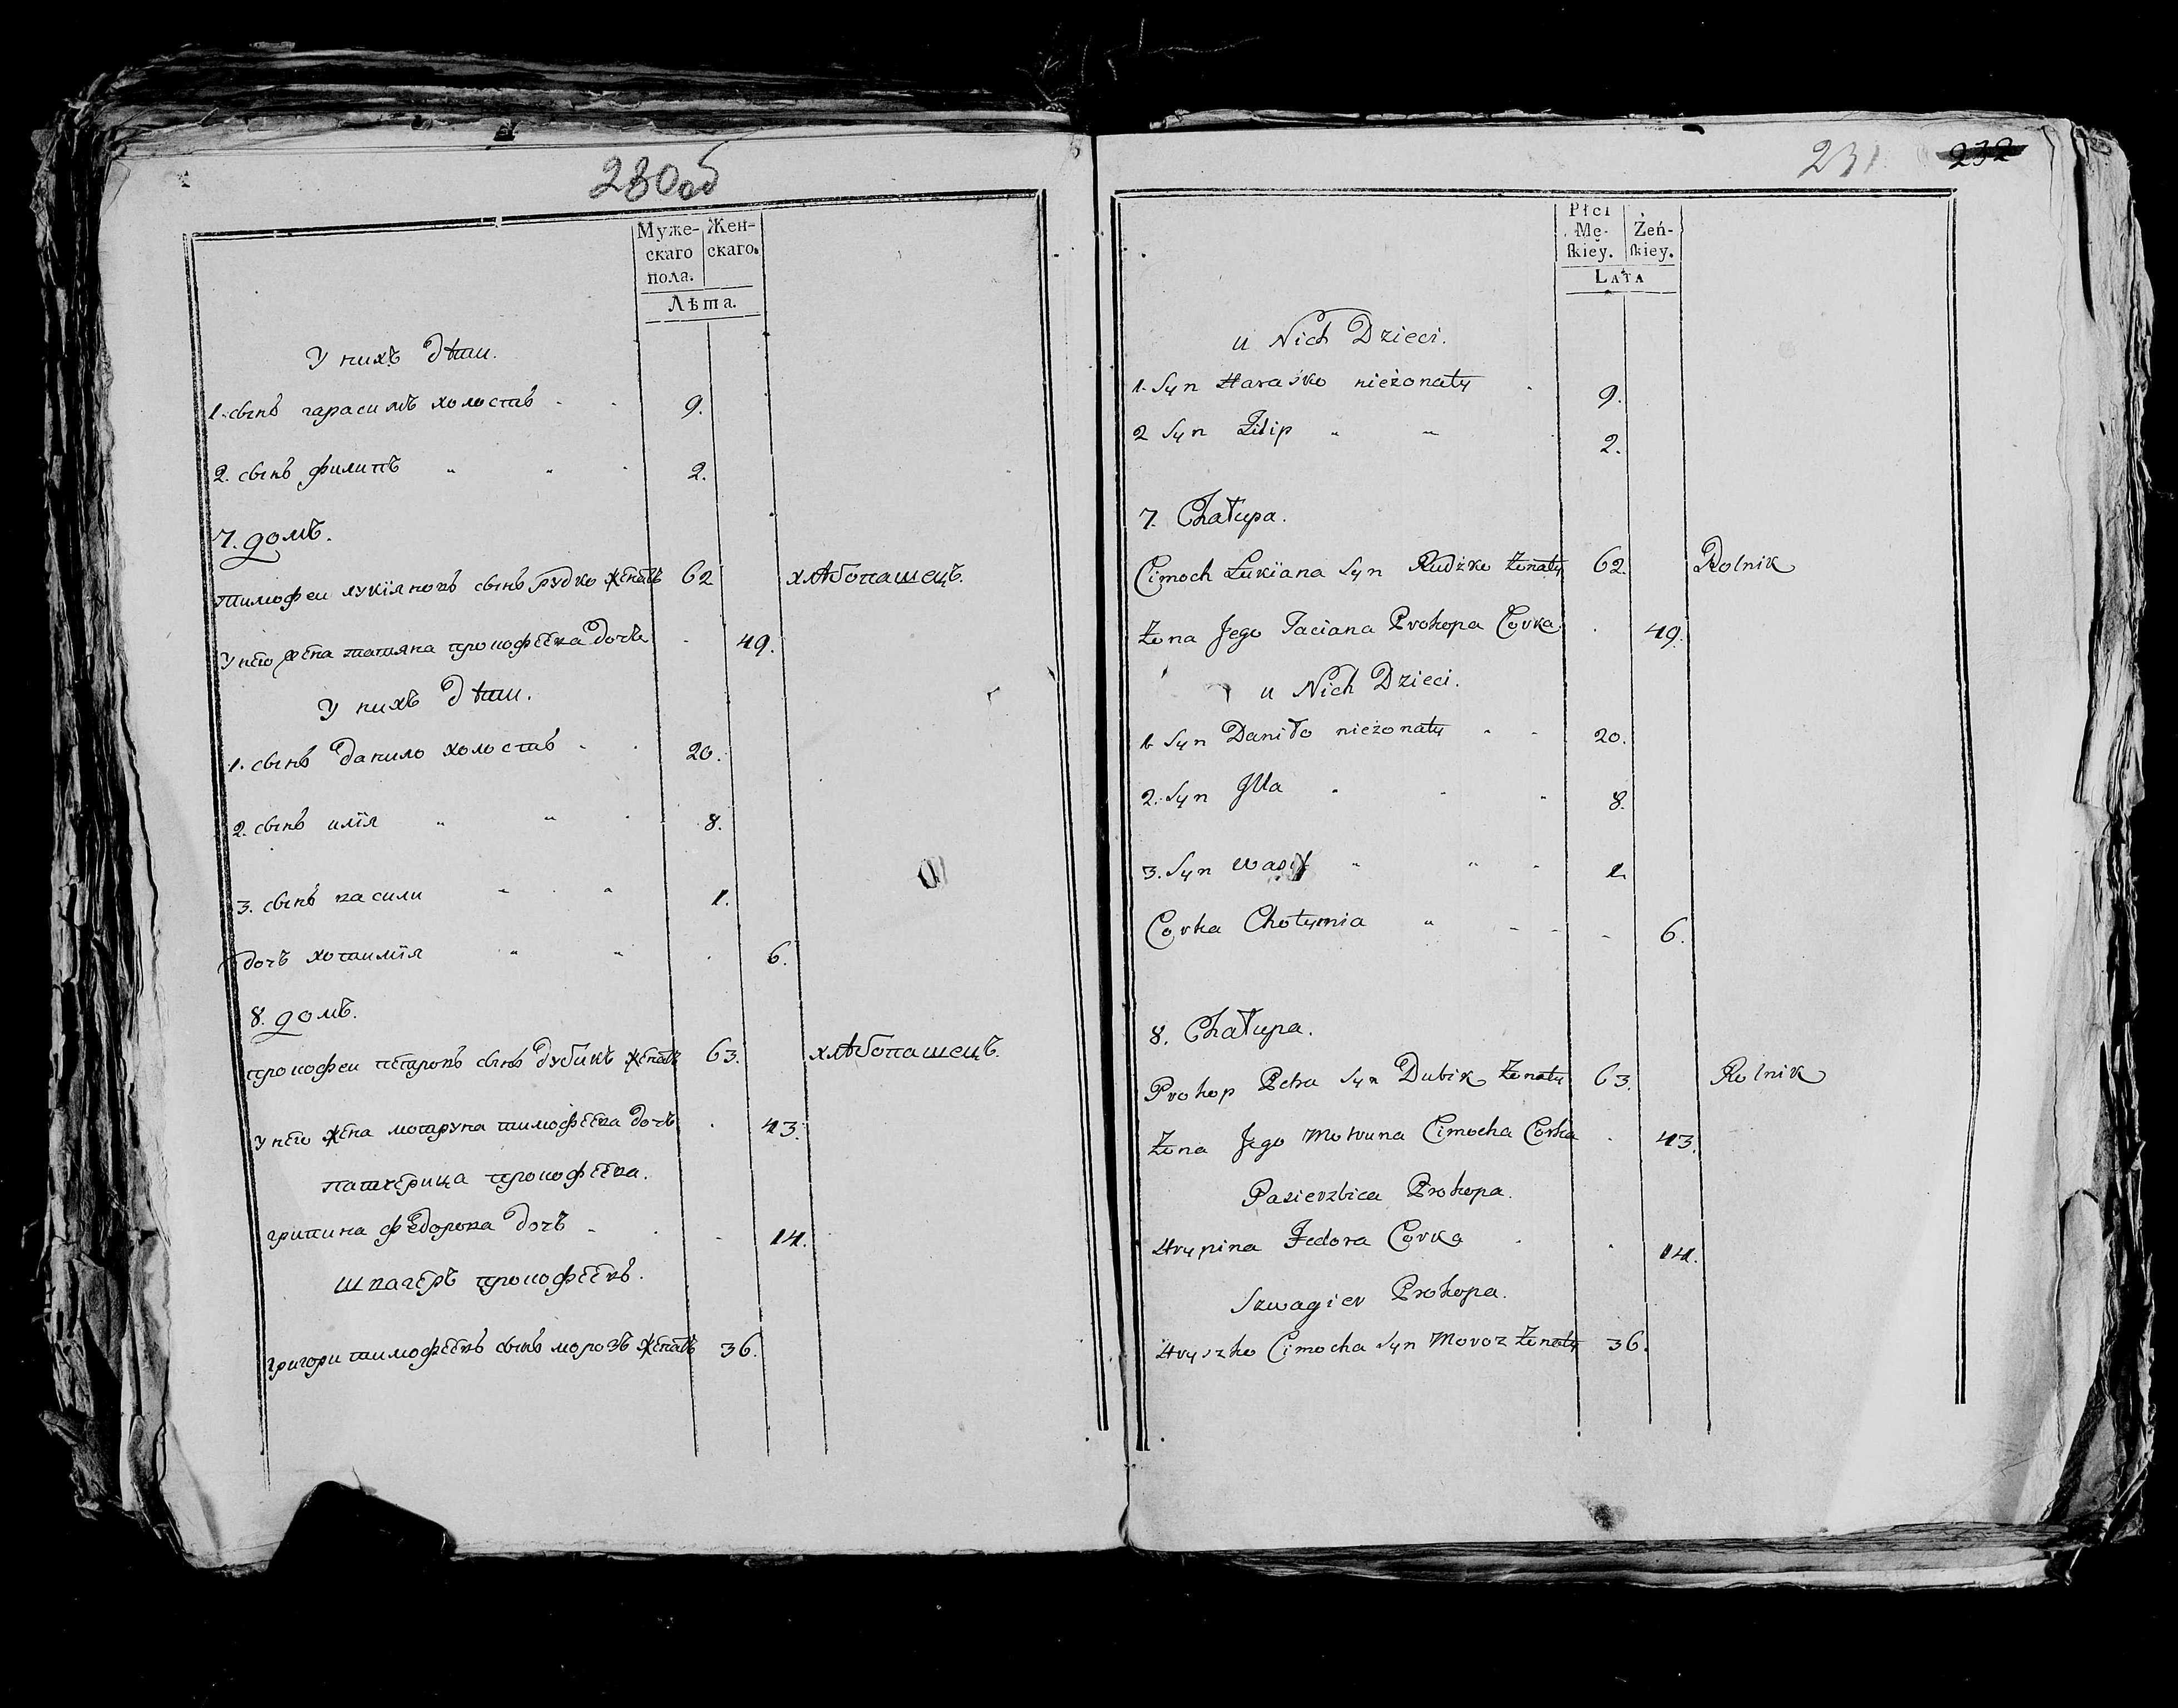 230об
Муже-
скаго
пола.
Жен-
скаго.
Лѣта.
У нихъ дѣти.
1. сынъ гарасимъ холостъ - - 9.
2. сынъ филипъ " " - 2.
7. домъ.
тимофеи лукїяновъ сынъ рудко женатъ 62 хлѣбопашецъ.
У него жена татяна прокофѣева дочь - 49.
У нихъ дѣти.
1. сынъ данило холостъ - - 20.
2. сынъ илїя " " - 8.
3. сынъ васили - - 1.
дочъ хотимїя " " - 6.
8. домъ.
прокофеи петровъ сынъ дубикъ женатъ 63. хлѣбопашецъ.
У него жена мотруна тимофеева дочъ - 43.
патчерица прокофеева.
грипина федорова дочъ - - - 14.
швагеръ прокофеевъ.
григори тимофеевъ сынъ морозъ женатъ 36.
231 232
Płci
Mę-
skiey.
Żeń-
skiey.
LATA
u Nich Dzieci.
1. Syn Haraśko nieżonaty - 9.
2 Syn Filip " " 2.
7. Chałupa.
Cimoch Łukiana Syn Rudźko Żonaty 62. Rolnik
Żona Jego Taciana Prokopa Corka - 49.
u Nich Dzieci.
1 Syn Daniło nieżonaty - - 20.
2. Syn Illa - - - 8.
3. Syn Wasil " " - 1.
Corka Chotymia " - - - 6.
8. Chałupa.
Prokop Petra Syn Dubik Żonaty 63. Rolnik
Żona Jego Motruna Cimocha Corka - 43.
Pasierzbica Prokopa.
Hrypina Fedora Corka - - 14.
Szwagier Prokopa.
Hryszko Cimocha Syn Moroz Żonaty 36.